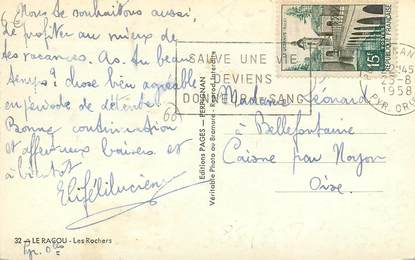 Nous te souhaitons aussi,
de profiter au mieux de
tes vacances. As-tu beau
temps ? chose bien agréable
en période de détente.
Bonne continuation
et affectueux baisers et
à bientôt
SAUVE UNE VIE
DEVIENS
DONNEUR DE SANG
15F
RÉPUBLIQUE FRANÇAISE
25-8
1958
PYR. OR.
Madame Léonard
à Bellefontaine
Caisne par Noyon
Oise.
Editions PAGES - PERPIGNAN
Véritable Photo au Bromure - Reprod. Interdite
32 - LE RACOU - Les Rochers
Pyr. Ories